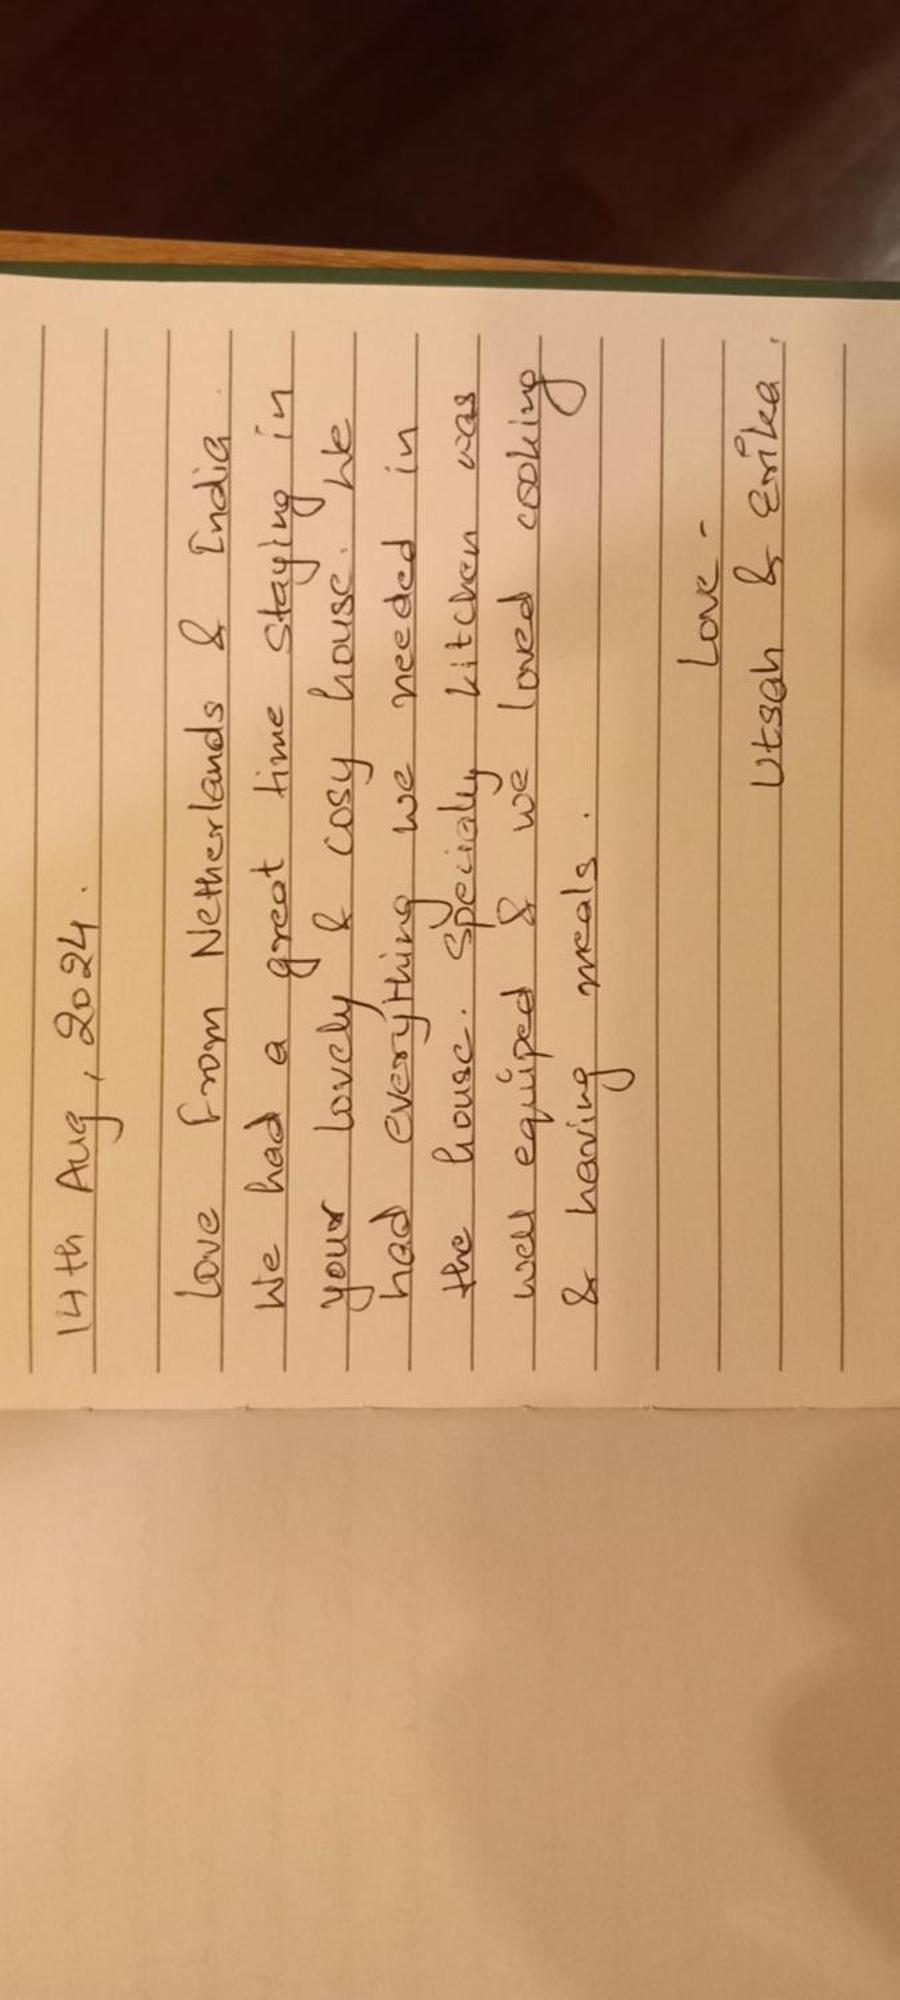 14th Aug, 2024.
Love from Netherlands & India.
We had a great time staying in
your lovely & cosy house. We
had everything we needed in
the house. Specially kitchen was
well equiped & we loved cooking
& having meals.
Love -
Utsah & Erika.